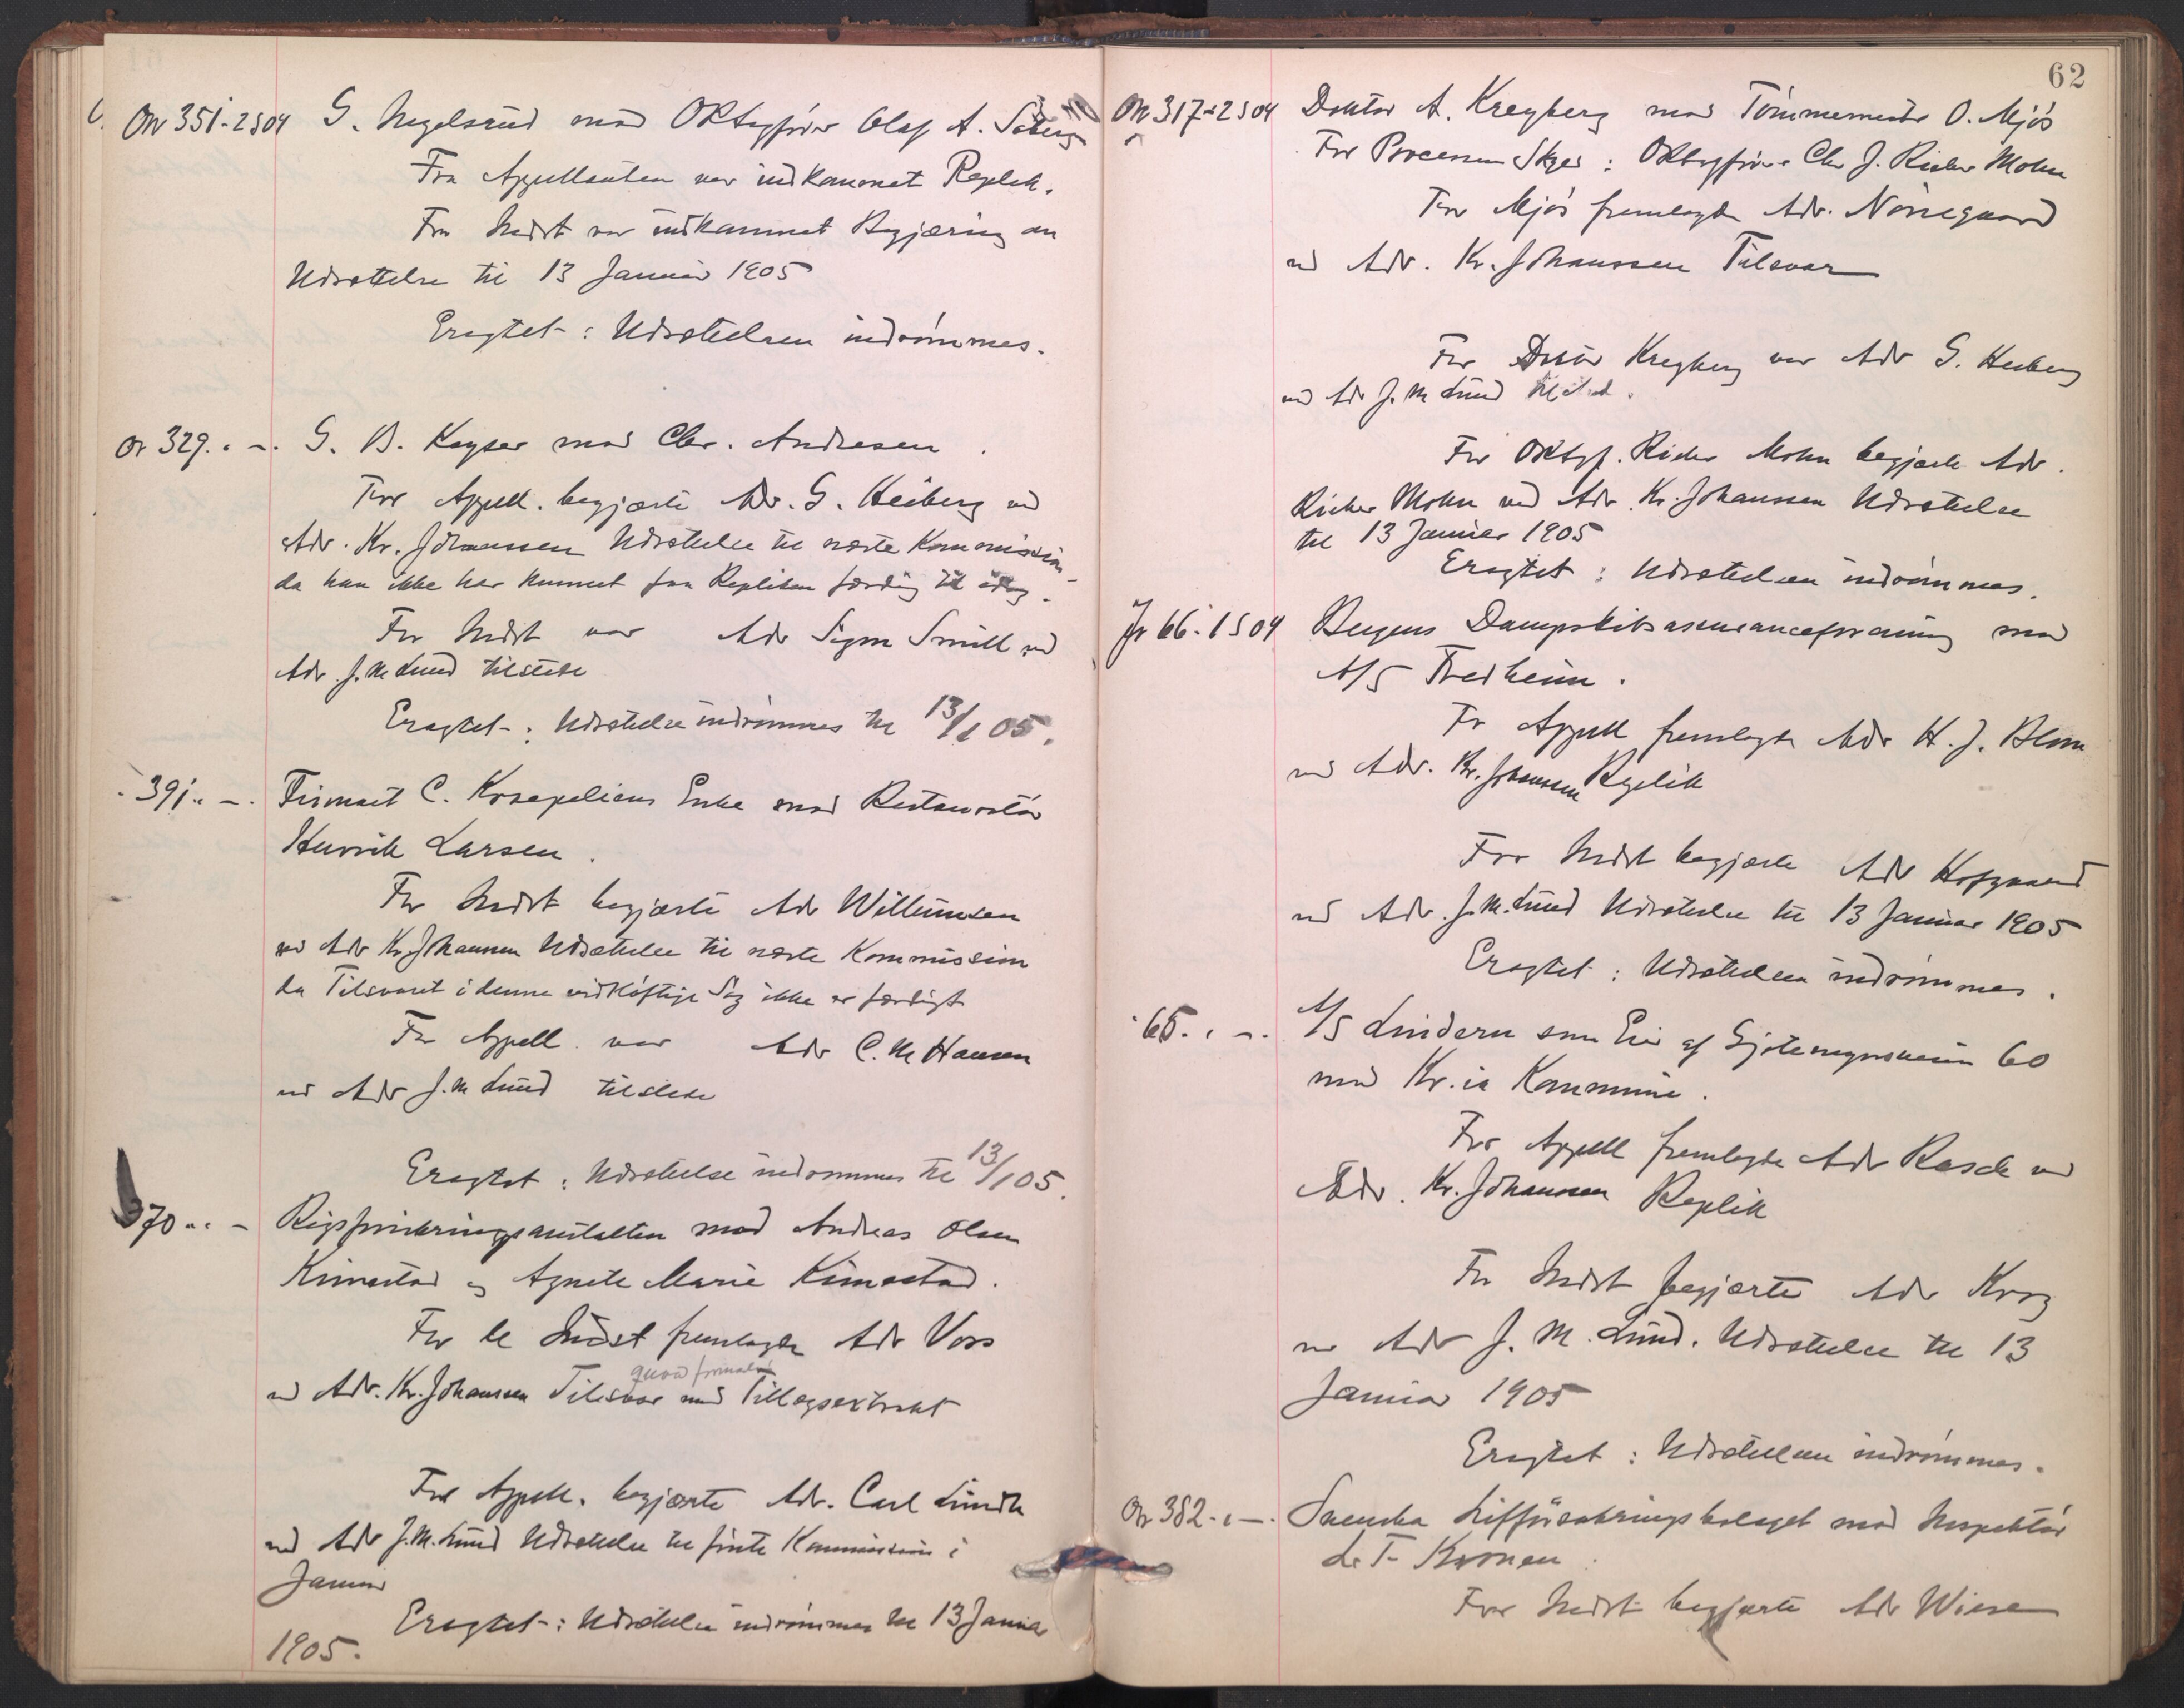 Or 351-2 S 04 G. Negelsrud mod ORtsagfører Olaf A. Soberg
Fra Appellanten var indkommet Replik.
Fra Indst var indkommet Begjæring om
Udsættelse til 13 Januar 1905
Eragtet: Udsættelsen indrømmes.
Or 329. " -. G. B. Kayser mod Chr. Andresen.
For Appell. begjærte Adv. G. Heiberg ved
Adv. Kr. Johanssen Udsættelse til næste Kommission
da han ikke har kunnet faa Repliken færdig til idag.
For Indst var Adv Sigm Smith ved
Adv. J. M Lund tilstede
Eragtet: Udsættelse indrømmes til 13/1 05.
" 391. " -. Firmaet C. Enke mod Restauratør
Henrik Larsen.
For Indst begjærte Adv Willumsen
ved Adv Kr. Johanssen Udsættelse til næste Kommission
da Tilsvaret i denne vidløftige Sag ikke er færdigt
For Appell. var Adv C. M Hansen
ved Adv J. M Lund tilstede
Eragtet: Udsættelse indrømmes til 13/1 05.
370. " - Rigsforsikringsanstalten mod Andreas Olsen
Kimestad og Agnete Marie Kimestad.
For de Indst fremlagde Adv Voss
quoad formalia
ved Adv. Kr. Johanssen Tilsvar med Tillægsextrakt
For Appell. begjærte Adv. Carl Lundh
ved Adv J. M. Lund Udsættelse til første Kommission i
Januar
Eragtet: Udsættelse indrømmes til 13 Januar
1905.
62
Or 317-2 S 04 Doktor A. Kreyberg mod Tømmermester O. Mjös
For : ORtsagfører Chr J. Rieber Mohn
For Mjös fremlagde Adv. Nörregaard
ved Adv. Kr. Johanssen Tilsvar
For Doktor Kreyberg var Adv G. Heiberg
ved Adv J. M Lund tilstede.
For ORtsgf. Rieber Mohn begjærte Adv.
Rieber Mohn ved Adv. Kr. Johanssen Udsættelse
til 13 Januar 1905
Eragtet: Udsættelsen indrømmes.
Jr 66-1 S 04 Bergens Dampskibsassuranceforening mod
A/S Fredheim.
For Appell fremlagde Adv H. J. Blom
ved Adv. Kr. Johanssen Replik
For Indst begjærte Adv Hofgaard
ved Adv. J. M. Lund Udsættelse til 13 Januar 1905
Eragtet: Udsættelsen indrømmes.
" 65. " -. A/S Lindern som Eier af 60
mod Kr.ia Kommune.
For Appell fremlagde Adv Rasch ved
Adv. Kr. Johanssen Replik
For Indst begjærte Adv Krog
ved Adv J. M. Lund. Udsættelse til 13
Januar 1905
Eragtet: Udsættelsen indrømmes.
Or 382. " -. Svenska Lifförsäkringsbolaget mod Inspektör
L. T. Kronen.
For Indst begjærte Adv Wiese